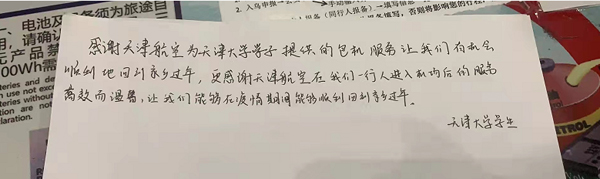 电池及
各须为旅途自
请确认
产品禁
00Wh需
2. 入乌申报一
填写信息
报备(同行人报备)—填写信息
否则将影响您的行程
感谢天津航空为天津大学学子提供的包机服务让我们有机会
顺利地回到家乡过年，更感谢天津航空在我们一行人进入机场后的服务
高效而温馨，让我们能够在疫情期间能够顺利回到家乡过年。
天津大学学生
tteries and de
e use not exce
tteries without
are
claration.
ETROL